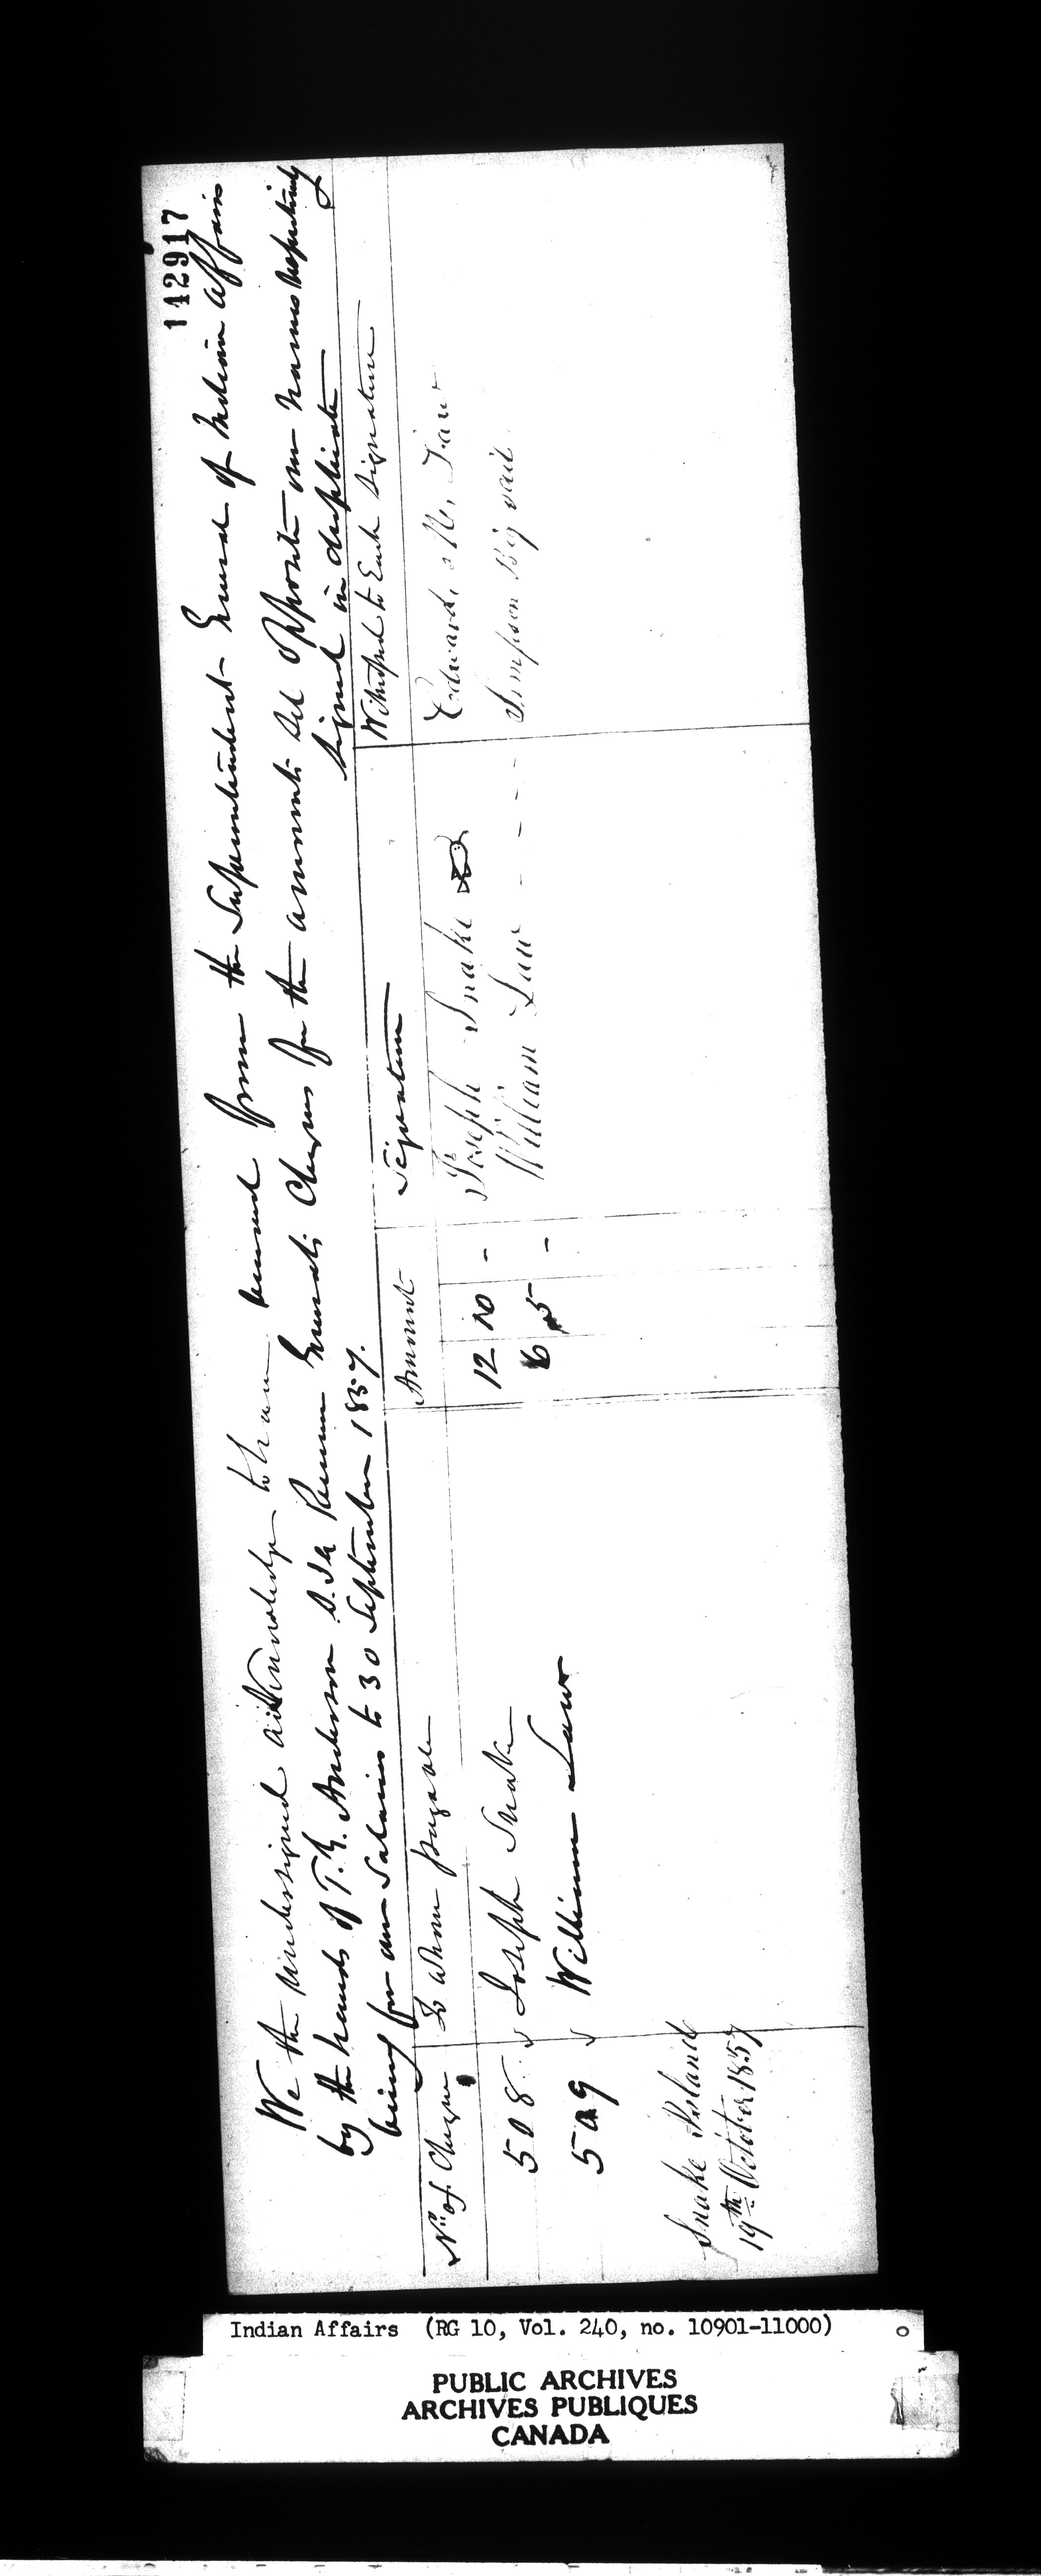 142917
We the undersigned acknowledge to have received from the Superintendent General of Indian Affairs
by the hands of T. G. Anderson S.I.A. Receiver Generals Cheques for the amounts set opposite our names respectively
being for our Salaries to 30 September 1857. signed in duplicate
No. of Cheque To whom payable Amount Signature Witnessed to Each Signature
508 Joseph Snake 12 10 - Joseph Snake Edward, Mc,
509 William Law 6 5 - William Law - - - - Simpson Big sail
Snake Island
19th October 1857
Indian Affairs (RG 10, Vol. 240, no. 10901-11000)
PUBLIC ARCHIVES
ARCHIVES PUBLIQUES
CANADA